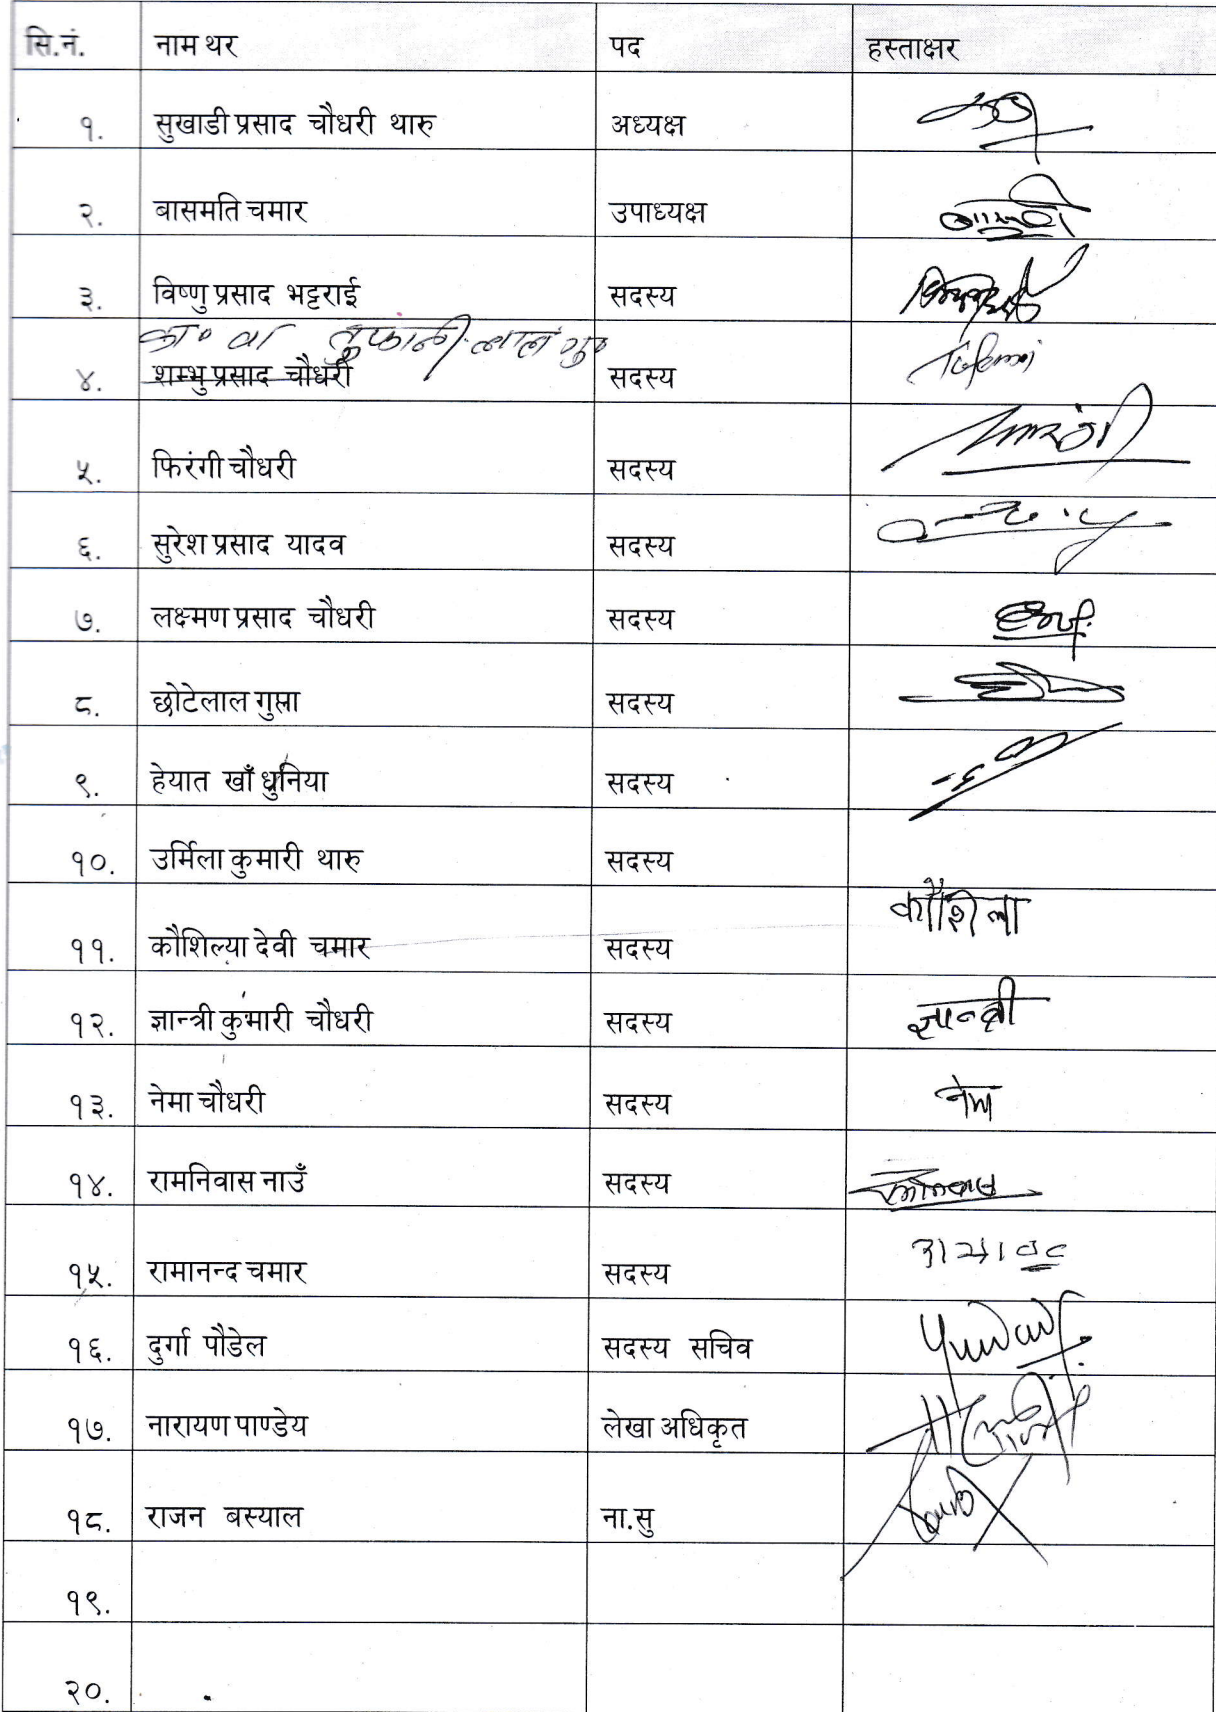 सि.नं. नाम थर पद हस्ताक्षर
१. सुखाडी प्रसाद चौधरी थारु अध्यक्ष
२. बासमति चमार उपाध्यक्ष
३. विष्णु प्रसाद भट्टराई सदस्य
का० वा तुफानी लाल गुप्त
४. शम्भु प्रसाद चौधरी सदस्य
५. फिरंगी चौधरी सदस्य
६. सुरेश प्रसाद यादव सदस्य
७. लक्ष्मण प्रसाद चौधरी सदस्य
८. छोटेलाल गुप्ता सदस्य
९. हेयात खाँ धुनिया सदस्य
१०. उर्मिला कुमारी थारु सदस्य
११. कौशिल्या देवी चमार सदस्य कौशिला
१२. ज्ञान्त्री कुमारी चौधरी सदस्य ज्ञान्त्री
१३. नेमा चौधरी सदस्य नेमा
१४. रामनिवास नाउँ सदस्य
१५. रामानन्द चमार सदस्य
१६. दुर्गा पौडेल सदस्य सचिव
१७. नारायण पाण्डेय लेखा अधिकृत
१८. राजन बस्याल ना.सु
१९.
२०.